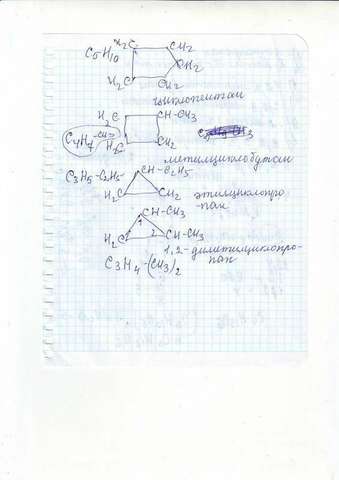 H₂C CH₂
C₅H₁₀
CH₂
H₂C CH₂
циклопентан
H₂C CH-CH₃
C₄H₇-CH₃
H₂C CH₂
метилциклобутан
C₃H₅-C₂H₅ CH-C₂H₅
H₂C CH₂ этилциклопро
-пан
CH-CH₃
1
H₂C 2 CH-CH₃
1,2-диметилциклопро-
C₃H₄-(CH₃)₂ пан